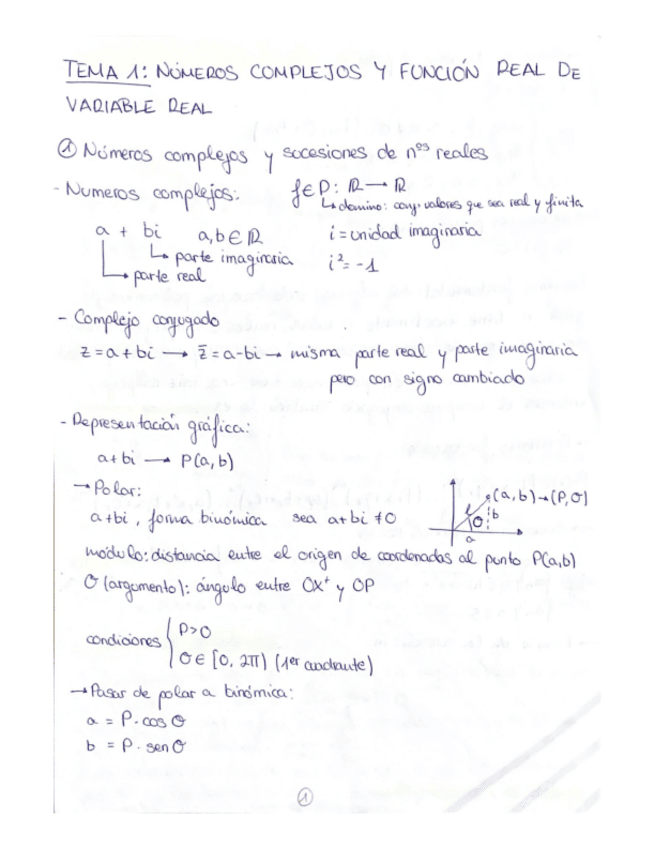 TEMA 1: NÚMEROS COMPLEJOS Y FUNCIÓN REAL DE
VARIABLE REAL
① Números complejos y sucesiones de nºs reales
- Numeros complejos: f∈D: ℝ → ℝ
↳ domino: conj. valores que sea real y finita
a + bi a,b ∈ ℝ i = unidad imaginaria
↳ parte imaginaria i² = -1
↳ parte real
- Complejo conjugado
z = a + bi → z̄ = a - bi → misma parte real y parte imaginaria
pero con signo cambiado
- Representación gráfica:
a + bi → P(a,b)
→ Polar: (a,b) → (P,Θ)
a + bi, forma binómica sea a + bi ≠ 0
b
Θ
a
módulo: distancia entre el origen de coordenadas al punto P(a,b)
Θ (argumento): ángulo entre OX⁺ y OP
condiciones { P > 0
Θ ∈ [0, 2π) (1er cuadrante)
→ Pasar de polar a binómica:
a = P · cos Θ
b = P · sen Θ
①